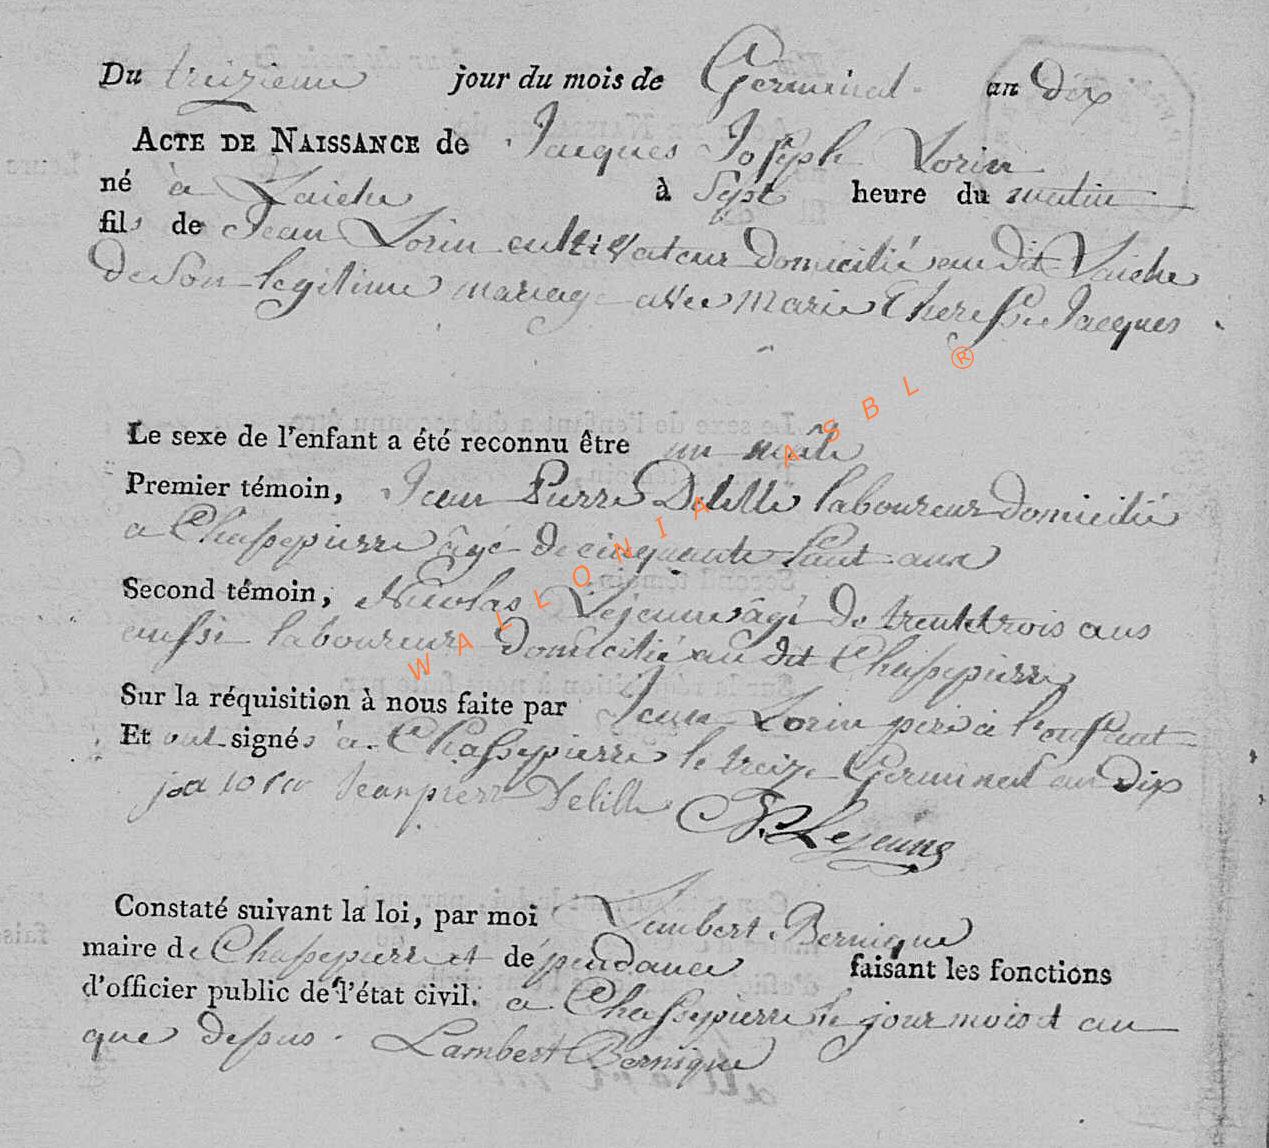 Du treizieme jour du mois de Germinal an dix
ACTE DE NAISSANCE de Jacques Joseph Lorin
né à Laiche à Sept heure du matin
fils de Jean Lorin cultivateur domicilié au dit Laiche
de Son legitime mariage avec Marie Theresse Jacques
Le sexe de l'enfant a été reconnu être un mâle
Premier témoin, Jean Pierre Delille laboureur domicilié
a Chassepierre âgé de cinquante huit ans
Second témoin, Nicolas Lejeune âgé de trente trois ans
aussi laboureur domicilié au dit Chassepierre
Sur la réquisition à nous faite par Jean Lorin pere a l'enfant
Et ont signés à Chassepierre le treize Germinal an dix
Jean pierre Delille N. Lejeune
Constaté suivant la loi, par moi Lambert Bernique
maire de Chassepierre et dépendance faisant les fonctions
d'officier public de l'état civil. a Chassepierre le jour mois et an
que dessus. Lambert Bernique
WALLONIA ASBL ®